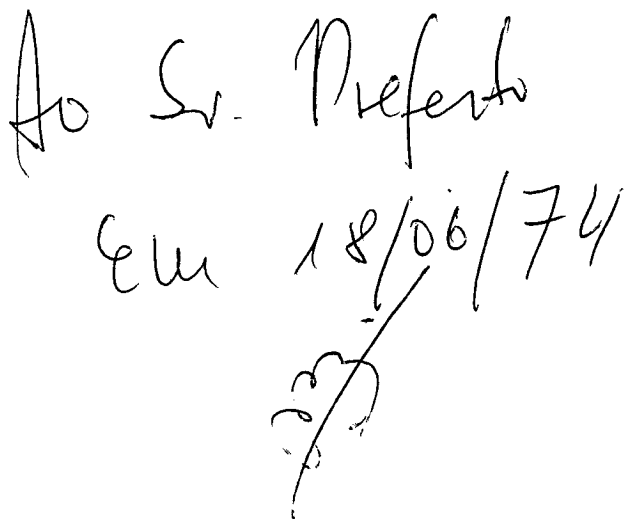 Ao Sr. Prefeito
Em 18/06/74